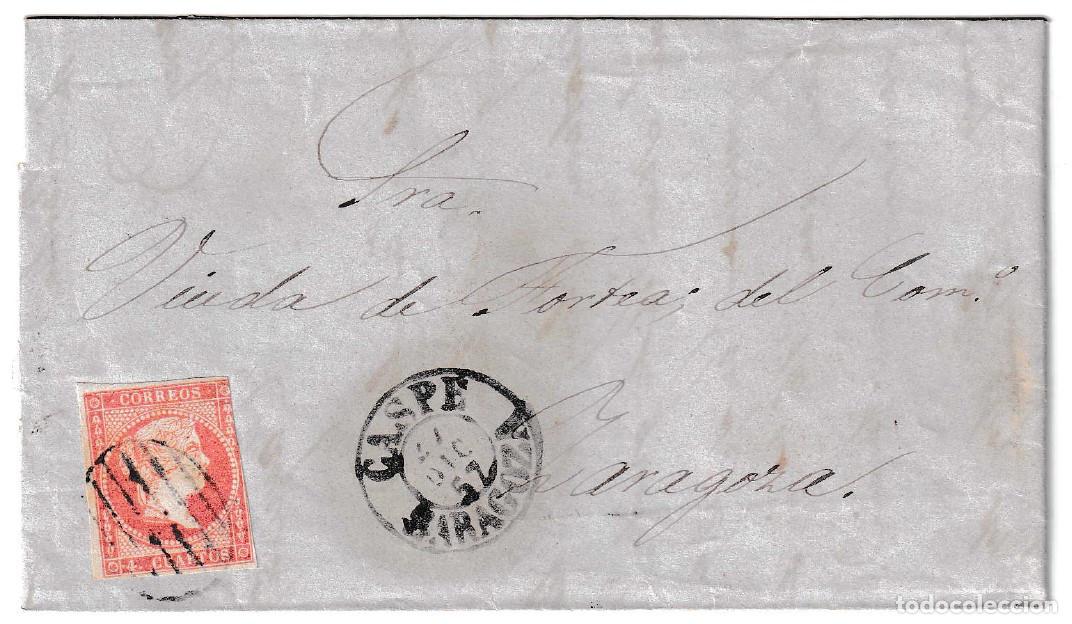 Sra.
Viuda de Fortea; del Com.º
Zaragoza.
CORREOS
4 CUARTOS
CASPE
DIC
57
ZARAGOZA
todocoleccion